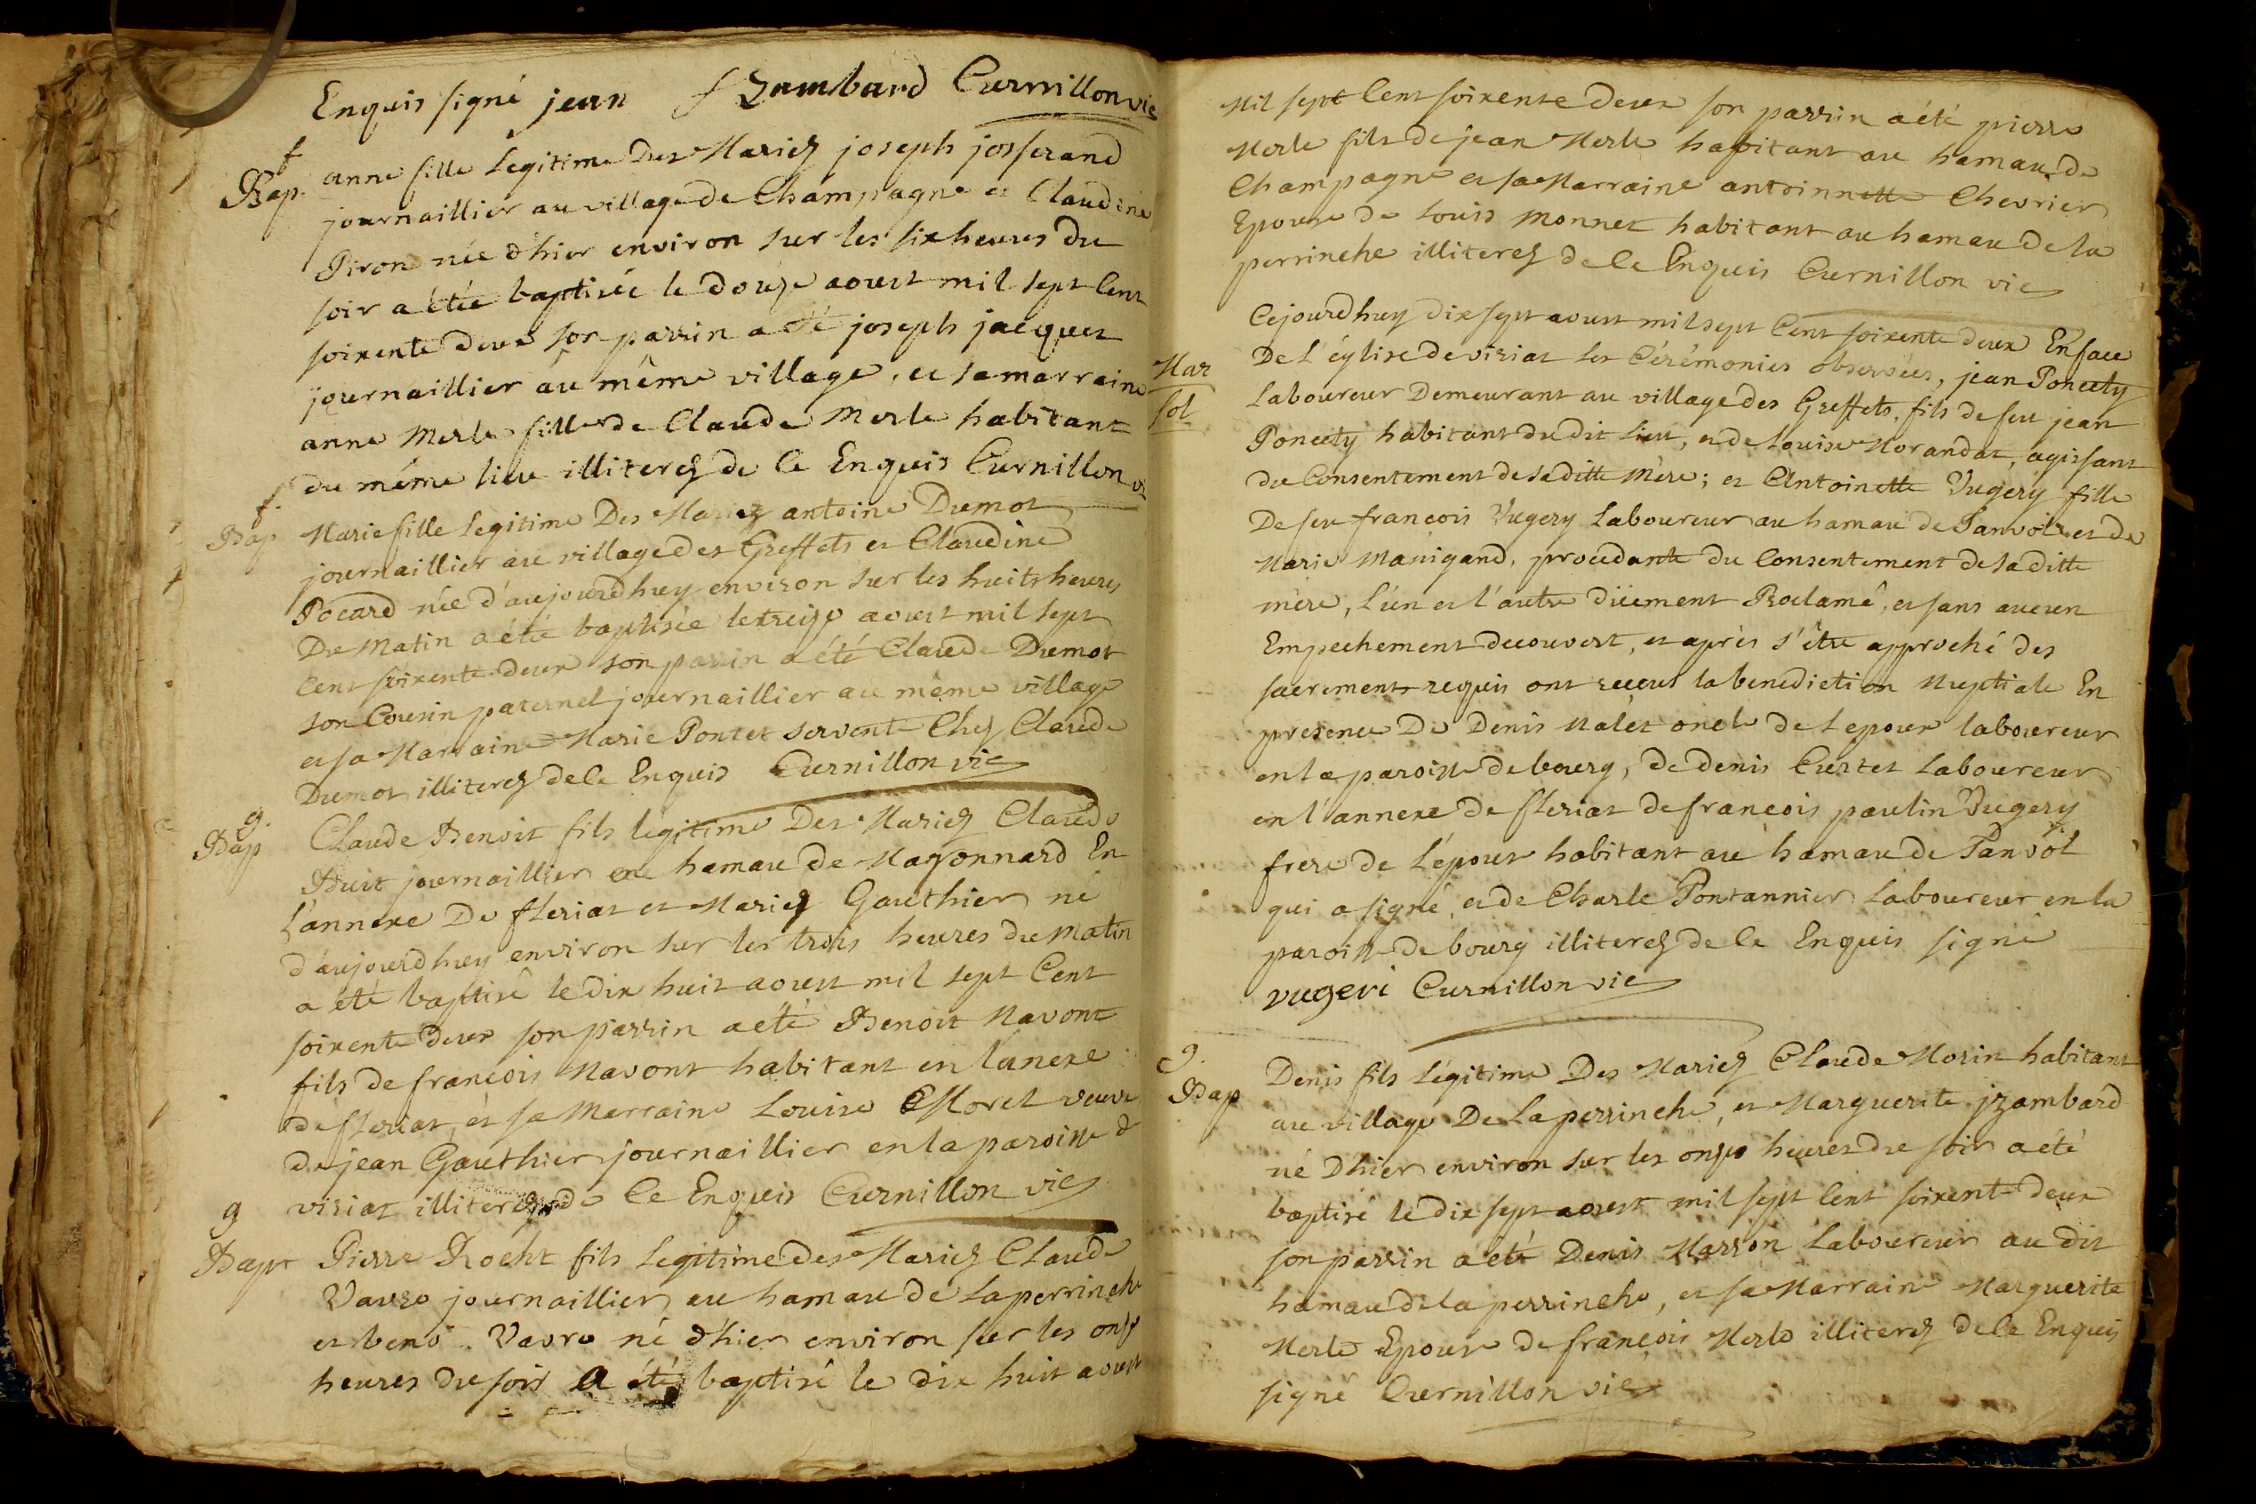 Enquis signé jean f Zambard Curnillon vic
f
Bap. anne fille Legitime Des Mariez joseph josserand
journaillier au village de Champagne et Claudine
Piron née d'hier environ sur les six heures Du
soir a étée baptisée le douze aoust mil sept Cent
soixente deux son parrin a été joseph jacquet
journaillier au même village, et sa marraine
anne Merle fille de Claude Merle habitant
du même lieu illiterez de Ce Enquis Curnillon vi
f.
Bap Marie fille Legitime Des Mariez antoine Dumot
journaillier au village des Greffets et Claudine
Pocard née d'aujourdhuy environ sur les huits heures
Du Matin a étée baptisée le treize aoust mil sept
Cent soixente deux son parrin a été Claude Dumot
son Cousin paternel journaillier au même village
et sa Marraine Marie Pontet servente Chez Claude
Dumot illiterez de Ce Enquis Curnillon vic
g.
Bap Claude Benoit fils legitime Des Mariez Claude
Buit journaillier au hamau de Mayonnard En
L'annexe De fleriat et Mariez Gauthier né
d'aujourdhuy environ sur les trois heures du Matin
a été baptisé le dix huit aoust mil sept Cent
soixente deux son parrin a été Benoit Navont
fils de francois Navont habitant en lanexe
de fleriat, et sa Marraine Louise Morel veuve
de jean Gauthier journaillier en la paroisse d
viriat illiterez de Ce Enquis Curnillon vic
g
Bapt Pierre Rocht fils Legitime des Mariez Claude
Vavre journaillier au hamau de la perrinche
et beno. Vavre né d'hier environ sur les onze
heures du soir a été baptisé le dix huit aoust
Mil sept Cent soixente deux son parrin a été pierre
Merle fils de jean Merle habitant au hamau de
Champagne et sa Marraine antoinnette Chevrier
Epouse de Louis Monnet habitant au hamau de la
perrinche illiterez de Ce Enquis Curnillon vic
Mar
sol
Cejourdhuy dix sept aoust mil sept Cent soixente deux En face
De L'église de viriat les Cérémonies observées, jean Poncety
Laboureur Demeurant au village des Greffets, fils de feu jean
Poncety habitant du dit Lieu, et de Louise Morandat, agissant
du Consentement de sa ditte Mère; et Antoinette Vugery fille
De feu francois Vugery Laboureur au hamau de Panvol et de
Marie Manigand, procedante du Consentement de sa ditte
mère, L'un et l'autre düement Proclamé, et sans aucun
Empechement decouvert, et après s'être approché des
sacrements requis ont reçeus la benediction Nuptiale En
presence De Denis Malet oncle de Lepoux laboureur
en la paroisse de bourg, de denis Curtet Laboureur
en l'annexe de fleriat de francois paulin Vugery
frere de L'épouse habitant au hamau de Panvol
qui a signé, et de Charle Pontannier Laboureur en la
paroisse de bourg illiterez de Ce Enquis signé
vugeri Curnillon vic
g.
Bap Denis fils Légitime Des Mariez Claude Morin habitant
au village De La perrinche, et Marguerite jzambard
né D'hier environ sur les onze heures du soir a été
baptisé le dix sept aoust mil sept Cent soixente deux
son parrin a été Denis Marron Laboureur au dit
hamau de la perrinche, et sa Marraine Marguerite
Merle Epouse de francois Merle illiterez de Ce Enquis
signé Curnillon vic